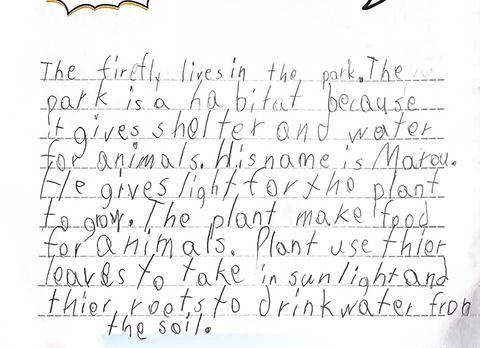 The firefly lives in the park. The
park is a habitat because
it gives shelter and water
for animals. His name is Marou.
He gives light for the plant
to grow. The plant make food
for animals. Plant use thier
leaves to take in sunlight and
thier roots to drink water from
the soil.